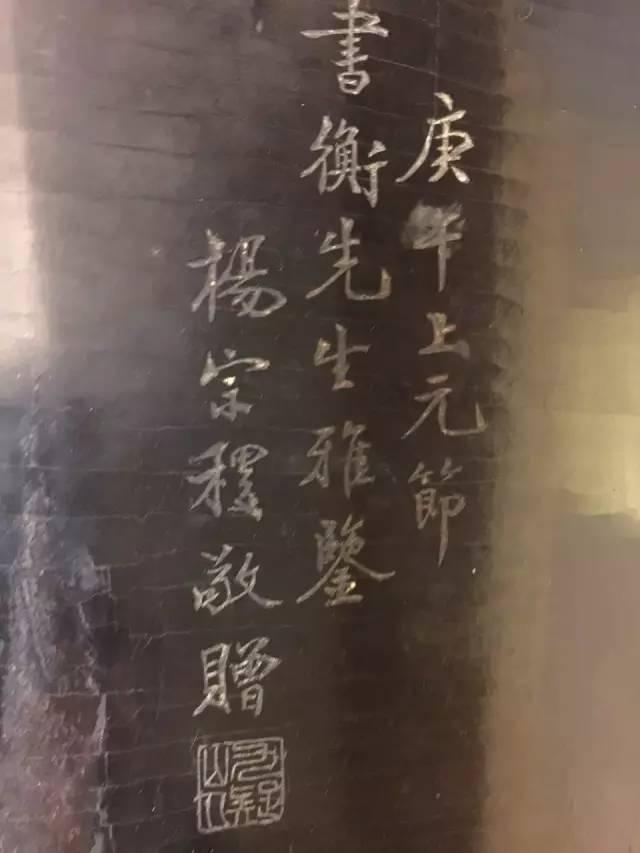 庚午上元節
書衡先生雅鑒
楊宗稷敬贈
九疑山人